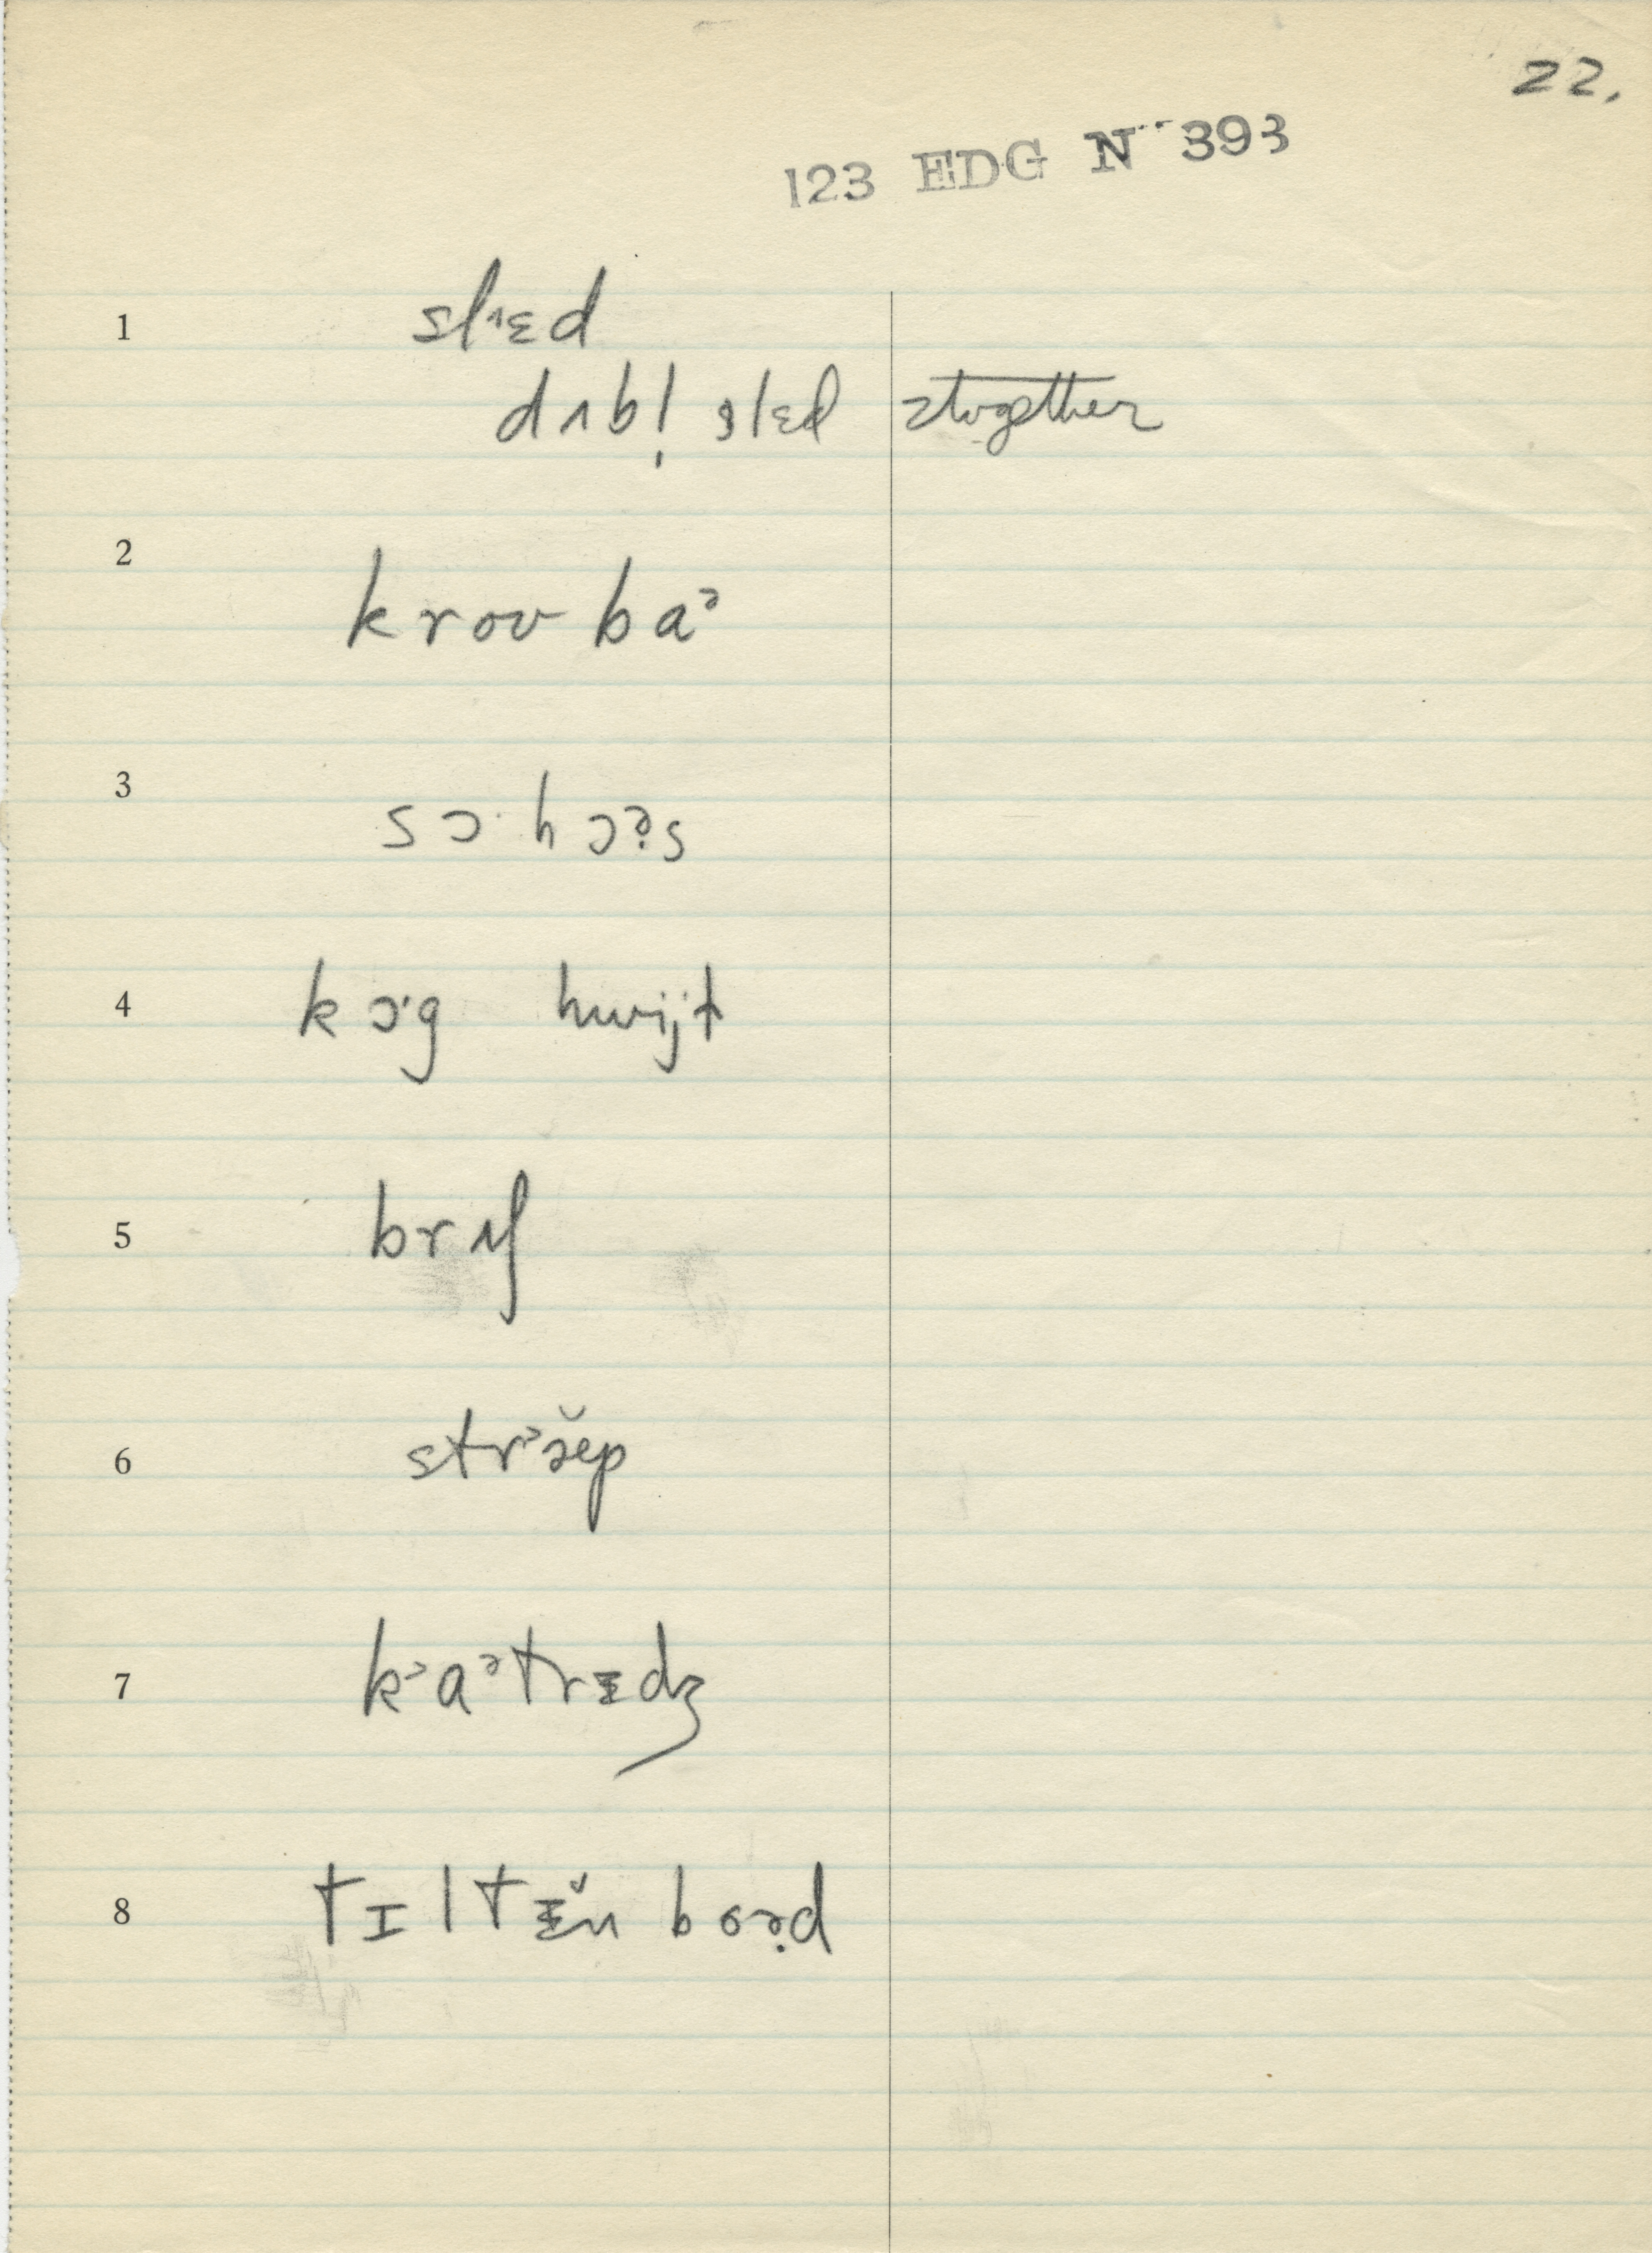 22.
123 EDG N 393
1 slᶺɛd
dʌbl̩ slɛd 2together
2 krou baᵊ
3 sɔ· hɔə̣s
4 kɔ·g hwijt
5 brʌʃ
6 strᵊæ̆p
7 kᵊaᵊtrᵻdʒ
8 tɪltᵻ̆n boə̣d